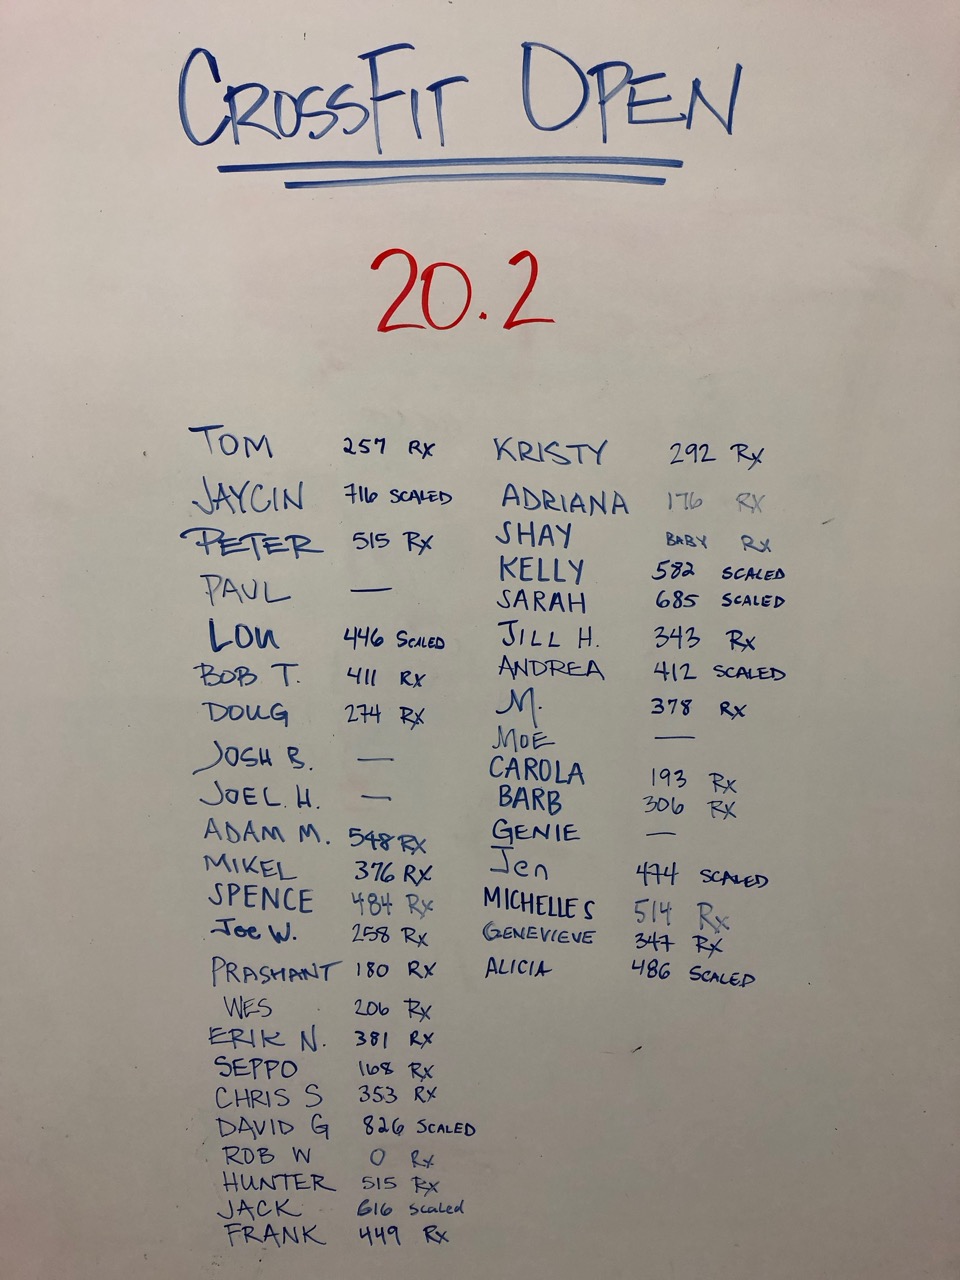 CROSSFIT OPEN
20.2
TOM 257 RX
JAYCIN 716 SCALED
PETER 515 RX
PAUL —
LOU 446 SCALED
BOB T. 411 RX
DOUG 274 RX
JOSH B. —
JOEL H. —
ADAM M. 548 RX
MIKEL 376 RX
SPENCE 484 RX
Joe W. 258 RX
PRASHANT 180 RX
WES 206 RX
ERIK N. 381 RX
SEPPO 168 RX
CHRIS S 353 RX
DAVID G 826 SCALED
ROB W 0 RX
HUNTER 515 RX
JACK 616 Scaled
FRANK 449 RX
KRISTY 292 RX
ADRIANA 176 RX
SHAY BABY RX
KELLY 582 SCALED
SARAH 685 SCALED
JILL H. 343 RX
ANDREA 412 SCALED
M. 378 RX
MOE —
CAROLA 193 RX
BARB 306 RX
GENIE —
Jen 474 SCALED
MICHELLE S 514 RX
GENEVIEVE 347 RX
ALICIA 486 SCALED